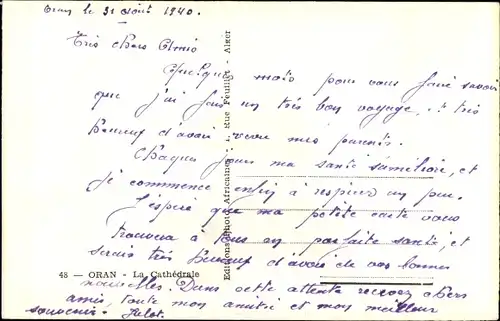 Oran le 31 Août 1940.
Très chers Amis
Quelques mots pour vous faire savoir
que j'ai fais un très bon voyage, et très
heureux d'avoir revu mes parents.
Chaques jours ma santé s'améliore, et
je commence enfin à respirer un peu.
J'espère que ma petite carte vous
trouvera à tous en parfaite santé, et
serais très heureux d'avoir de vos bonnes
48 — ORAN - La Cathédrale
nouvelles. Dans cette attente recevez chers
amis, toute mon amitié et mon meilleur
souvenir.
Editions Photo Africaines - 1, Rue Feuillet - Alger